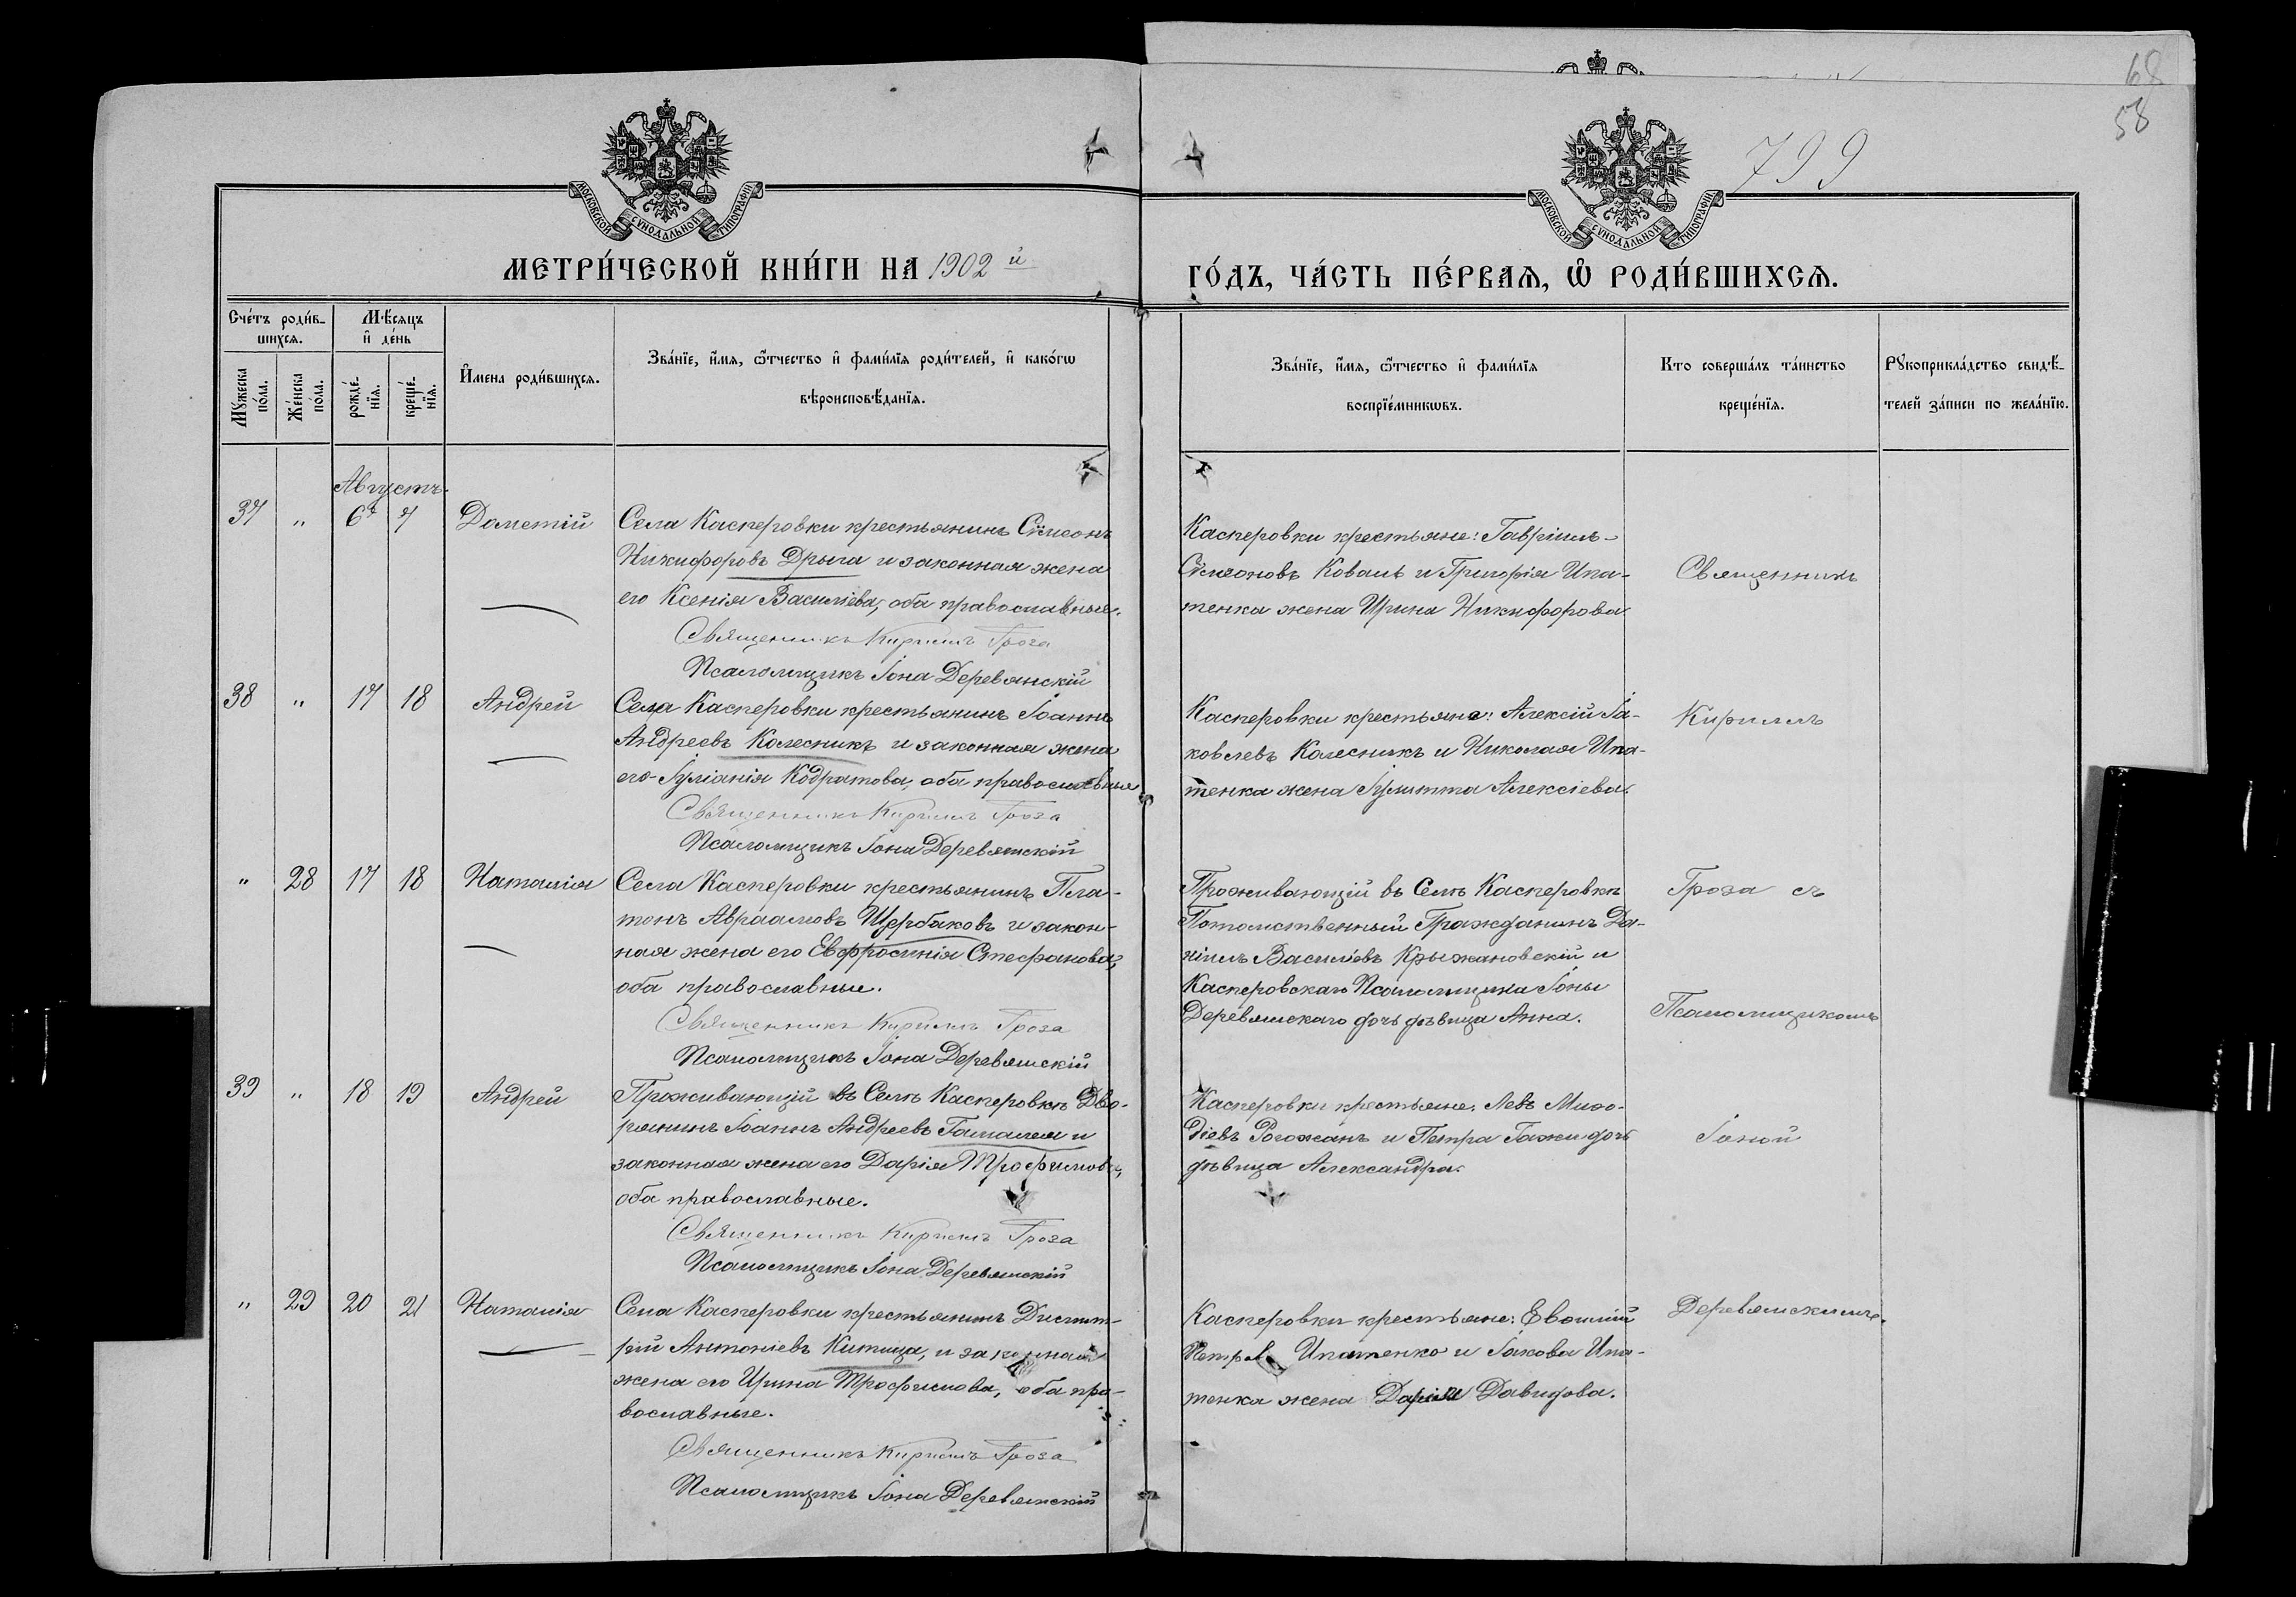 68
58
799
МОСКОВСКОЙ СУНОДАЛЬНОЙ ТИПОГРАФІИ
МОСКОВСКОЙ СУНОДАЛЬНОЙ ТИПОГРАФІИ
МЕТРИ́ЧЕСКОЙ КНИ́ГИ НА 1902 й
ГО́ДЪ, ЧА́СТЬ ПЕ́РВАѦ, Ѡ҆ РОДИ́ВШИХСѦ.
Сче́тъ роди́в-
шихсѧ.
Мꙋжеска по́ла.
Же́нска по́ла.
Мѣ́сѧцъ
и҆ де́нь
рожде́-нїѧ.
креще́-нїѧ.
И҆мена роди́вшихсѧ.
Зва́нїе, и҆́мѧ, ѻ҆́тчество и҆ фами́лїѧ роди́телей, и҆ како́гѡ
вѣроисповѣ́данїѧ.
Зва́нїе, и҆́мѧ, ѻ҆́тчество и҆ фами́лїѧ
воспрїе́мникѡвъ.
Кто соверша́лъ та́инство
креще́нїѧ.
Рꙋкоприкла́дство свидѣ́-
телей за́писи по жела́нїю.
Августъ.
37 " 6 7 Дометій
Села Касперовки крестьянинъ Сѵмеонъ
Никифоровъ Дрыга и законная жена
его Ксенія Василіева, оба православные.
Священникъ Кириллъ Гроза
Псаломщикъ Іона Деревянскій
Касперовки крестьяне: Гавріилъ
Сѵмеоновъ Коваль и Григорія Ипа-
тенка жена Ирина Никифорова
Священникъ
38 " 17 18 Андрей
Села Касперовки крестьянинъ Іоаннъ
Андреевъ Колесникъ и законная жена
его Іуліанія Кодратова, оба православные
Священникъ Кириллъ Гроза
Псаломщикъ Іона Деревянскій
Касперовки крестьяне: Алексій Іа-
ковлевъ Колесникъ и Николая Ипа-
тенка жена Іулитта Алексіева.
Кириллъ
" 28 17 18 Наталія
Села Касперовки крестьянинъ Пла-
тонъ Авраамовъ Щербаковъ и закон-
ная жена его Евфросинія Стефанова,
оба православные.
Священникъ Кириллъ Гроза
Псаломщикъ Іона Деревянскій
Проживающій въ Селѣ Касперовкѣ
Потомственный Гражданинъ Да-
ніилъ Василіевъ Крыжановскій и
Касперовскаго Псаломщика Іоны
Деревянскаго дочь дѣвица Анна.
Гроза съ
Псаломщикомъ
39 " 18 19 Андрей
Проживающій въ Селѣ Касперовкѣ Дво-
рянинъ Іоаннъ Андреевъ Гамалея и
законная жена его Дарія Трофимова,
оба православные.
Священникъ Кириллъ Гроза
Псаломщикъ Іона Деревянскій
Касперовки крестьяне: Левъ Мино-
діевъ Рогожанъ и Петра Гажи дочь
дѣвица Александра.
Іоной
" 29 20 21 Наталія
Села Касперовки крестьянинъ Димит-
рій Антоніевъ Китица, и законная
жена его Ирина Трофимова, оба пра-
вославные.
Священникъ Кириллъ Гроза
Псаломщикъ Іона Деревянскій
Касперовки крестьяне: Евфимій
Петровъ Ипатенко и Іакова Ипа-
тенка жена Дарія Давидова.
Деревянскимъ.